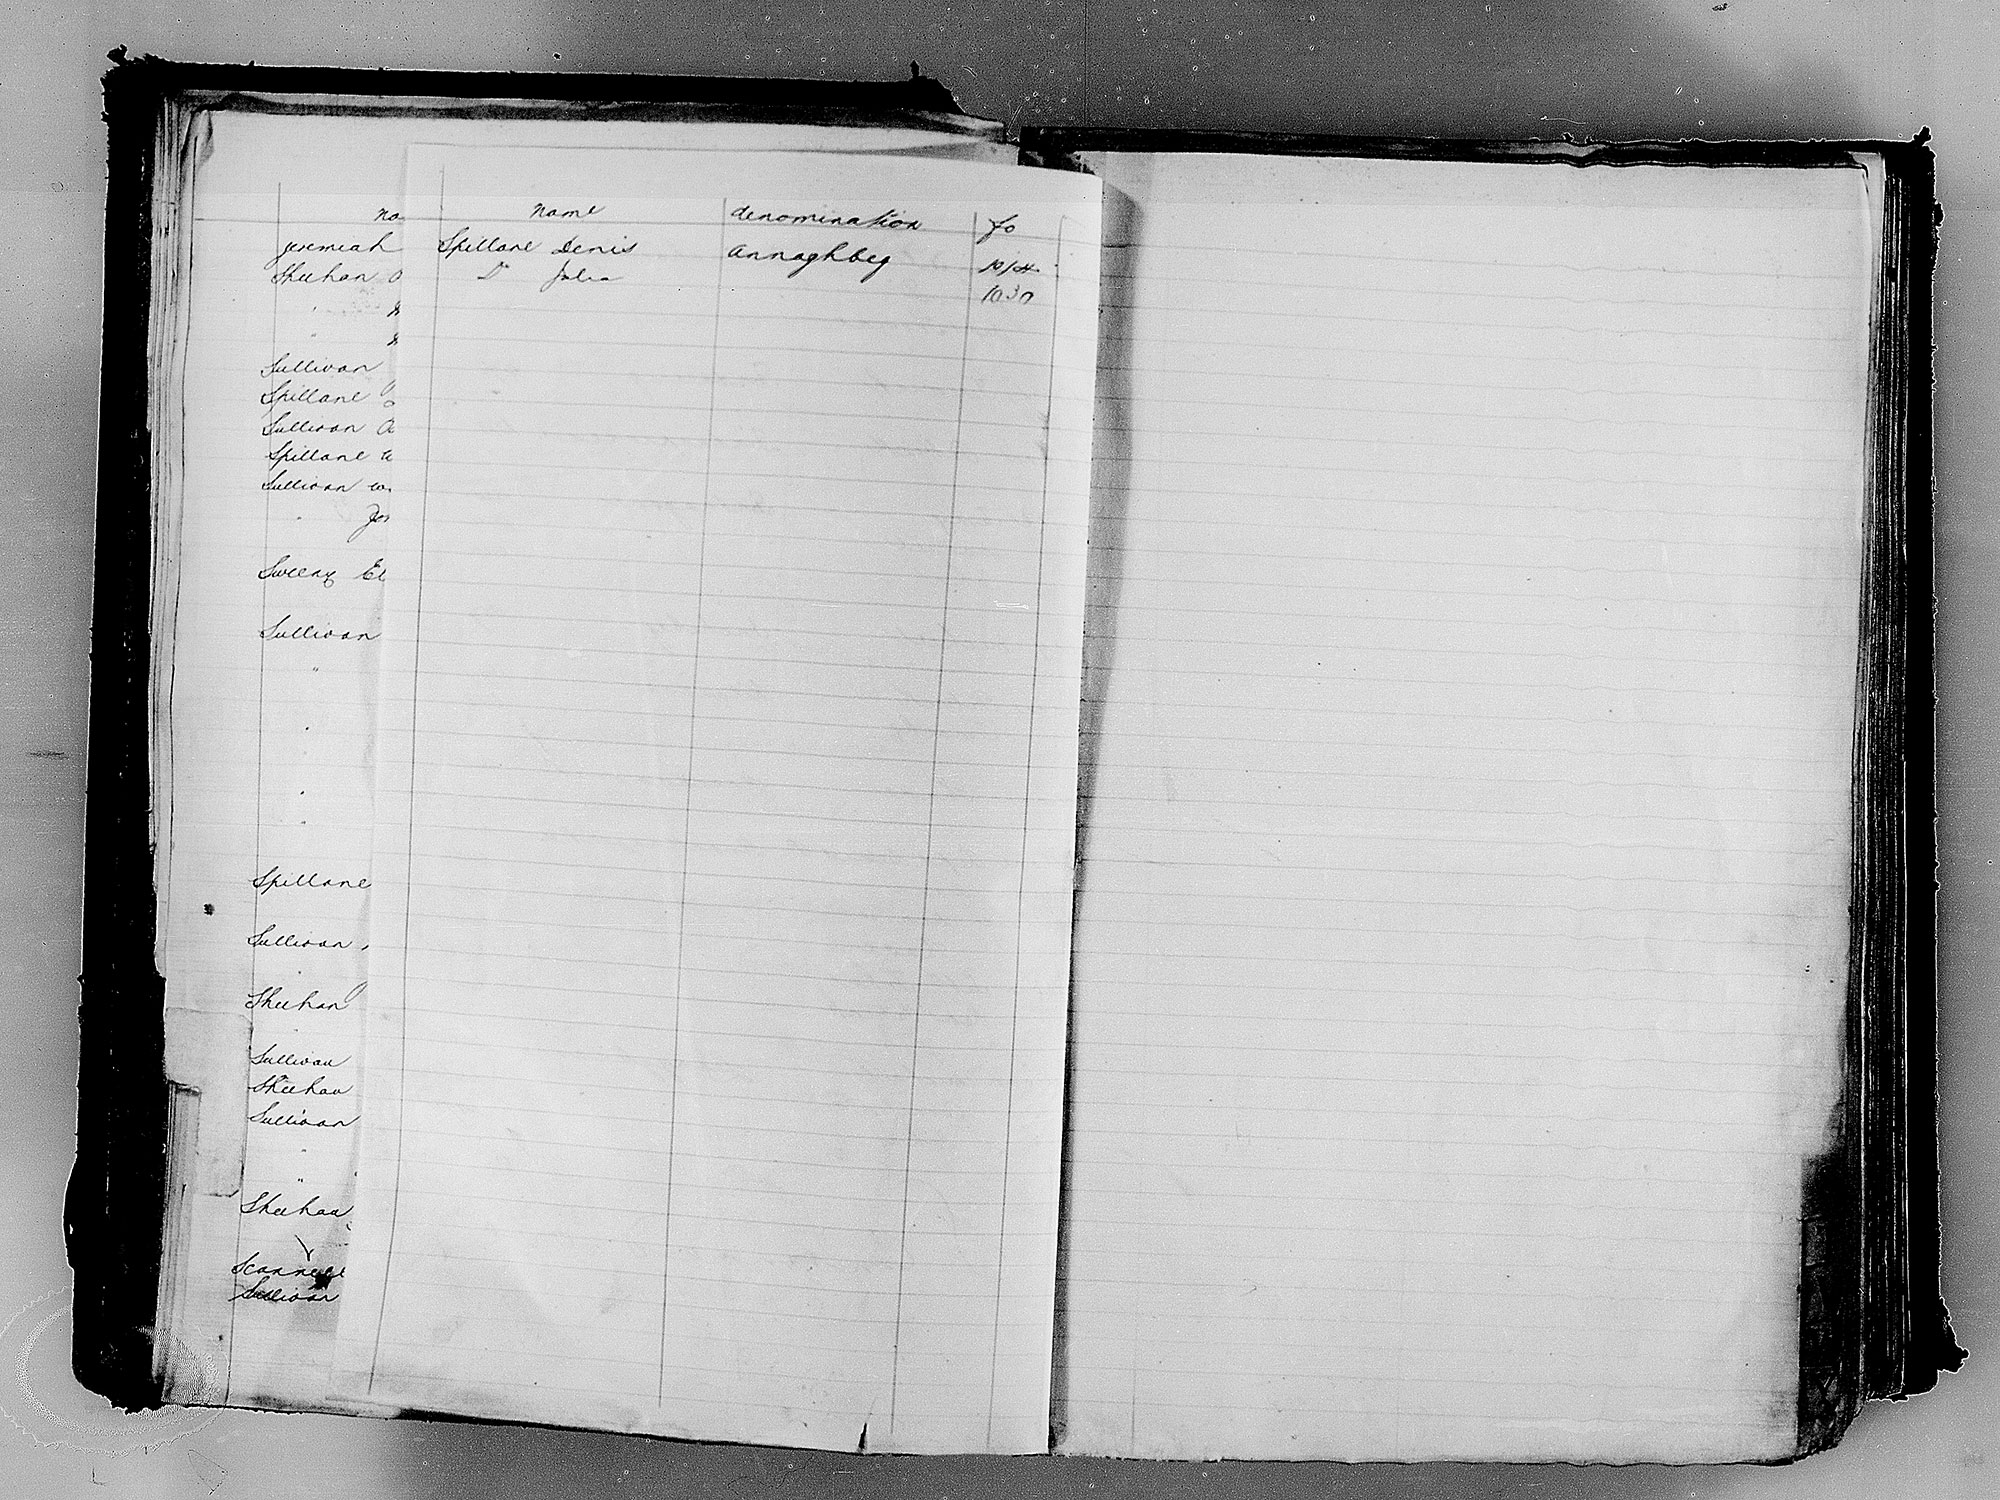 name denomination fo
Spillane Denis Annaghbeg
Do Julia 1030
Jeremiah
Sheehan
Sullivan
Spillane
Sullivan
Spillane
Sullivan
Sweeny El
Sullivan
"
Spillane
Sullivan
Sheehan
Sullivan
Sheehan
Sullivan
"
Sheehan
Scannell
Sullivan